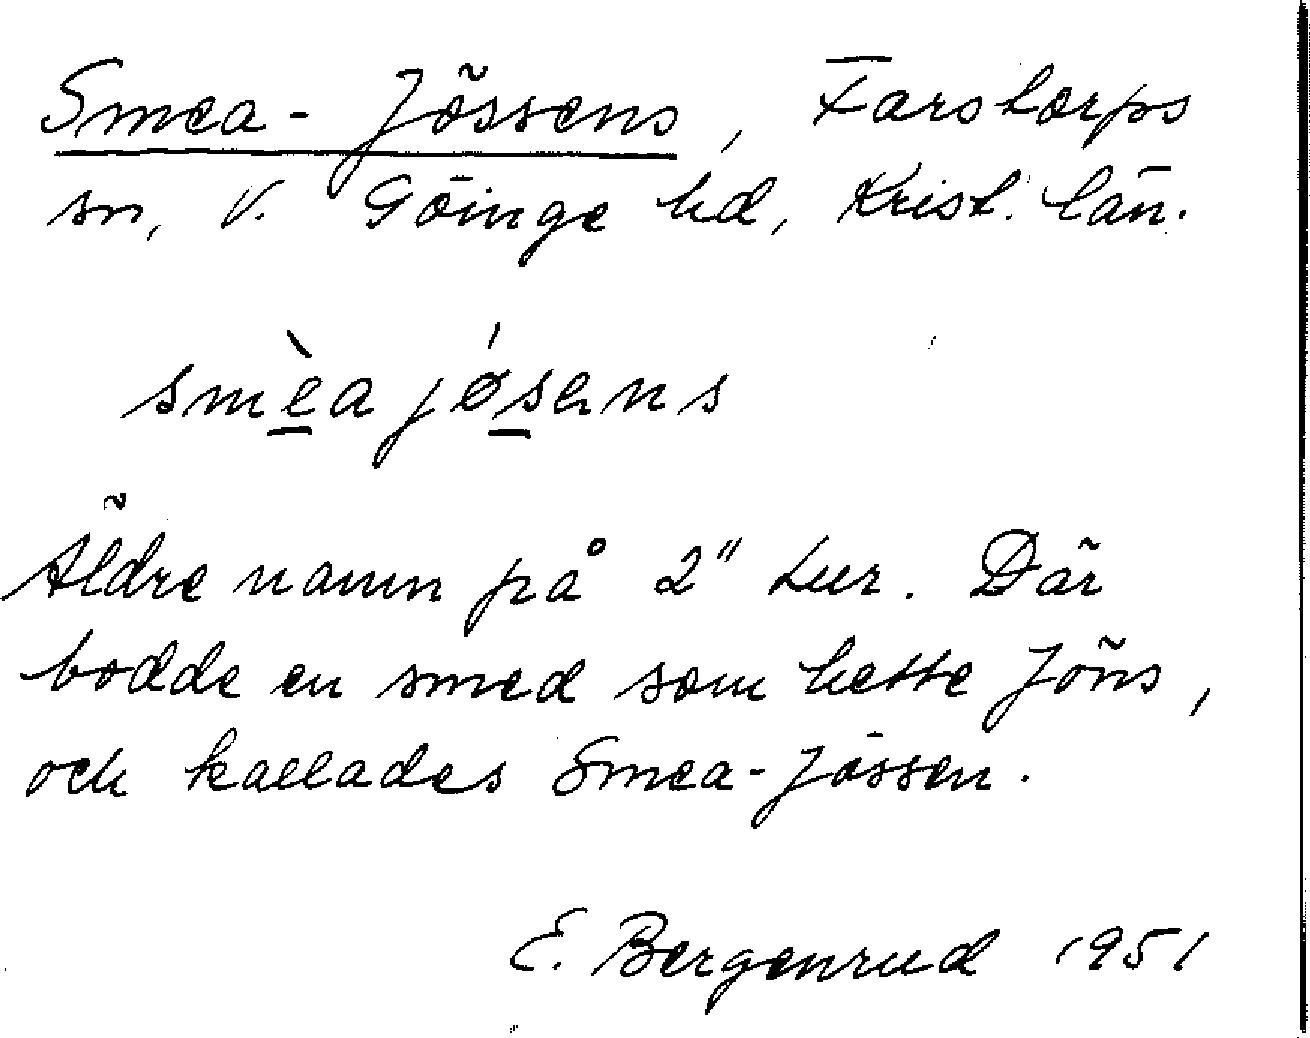 Smea-Jössens, Farstorps
sn, V. Göinge hd, Krist. län.
smèa jǿsens
Äldre namn på 2" Lur. Där
bodde en smed som hette Jöns,
och kallades Smea-Jössen.
E. Bergenrud 1951